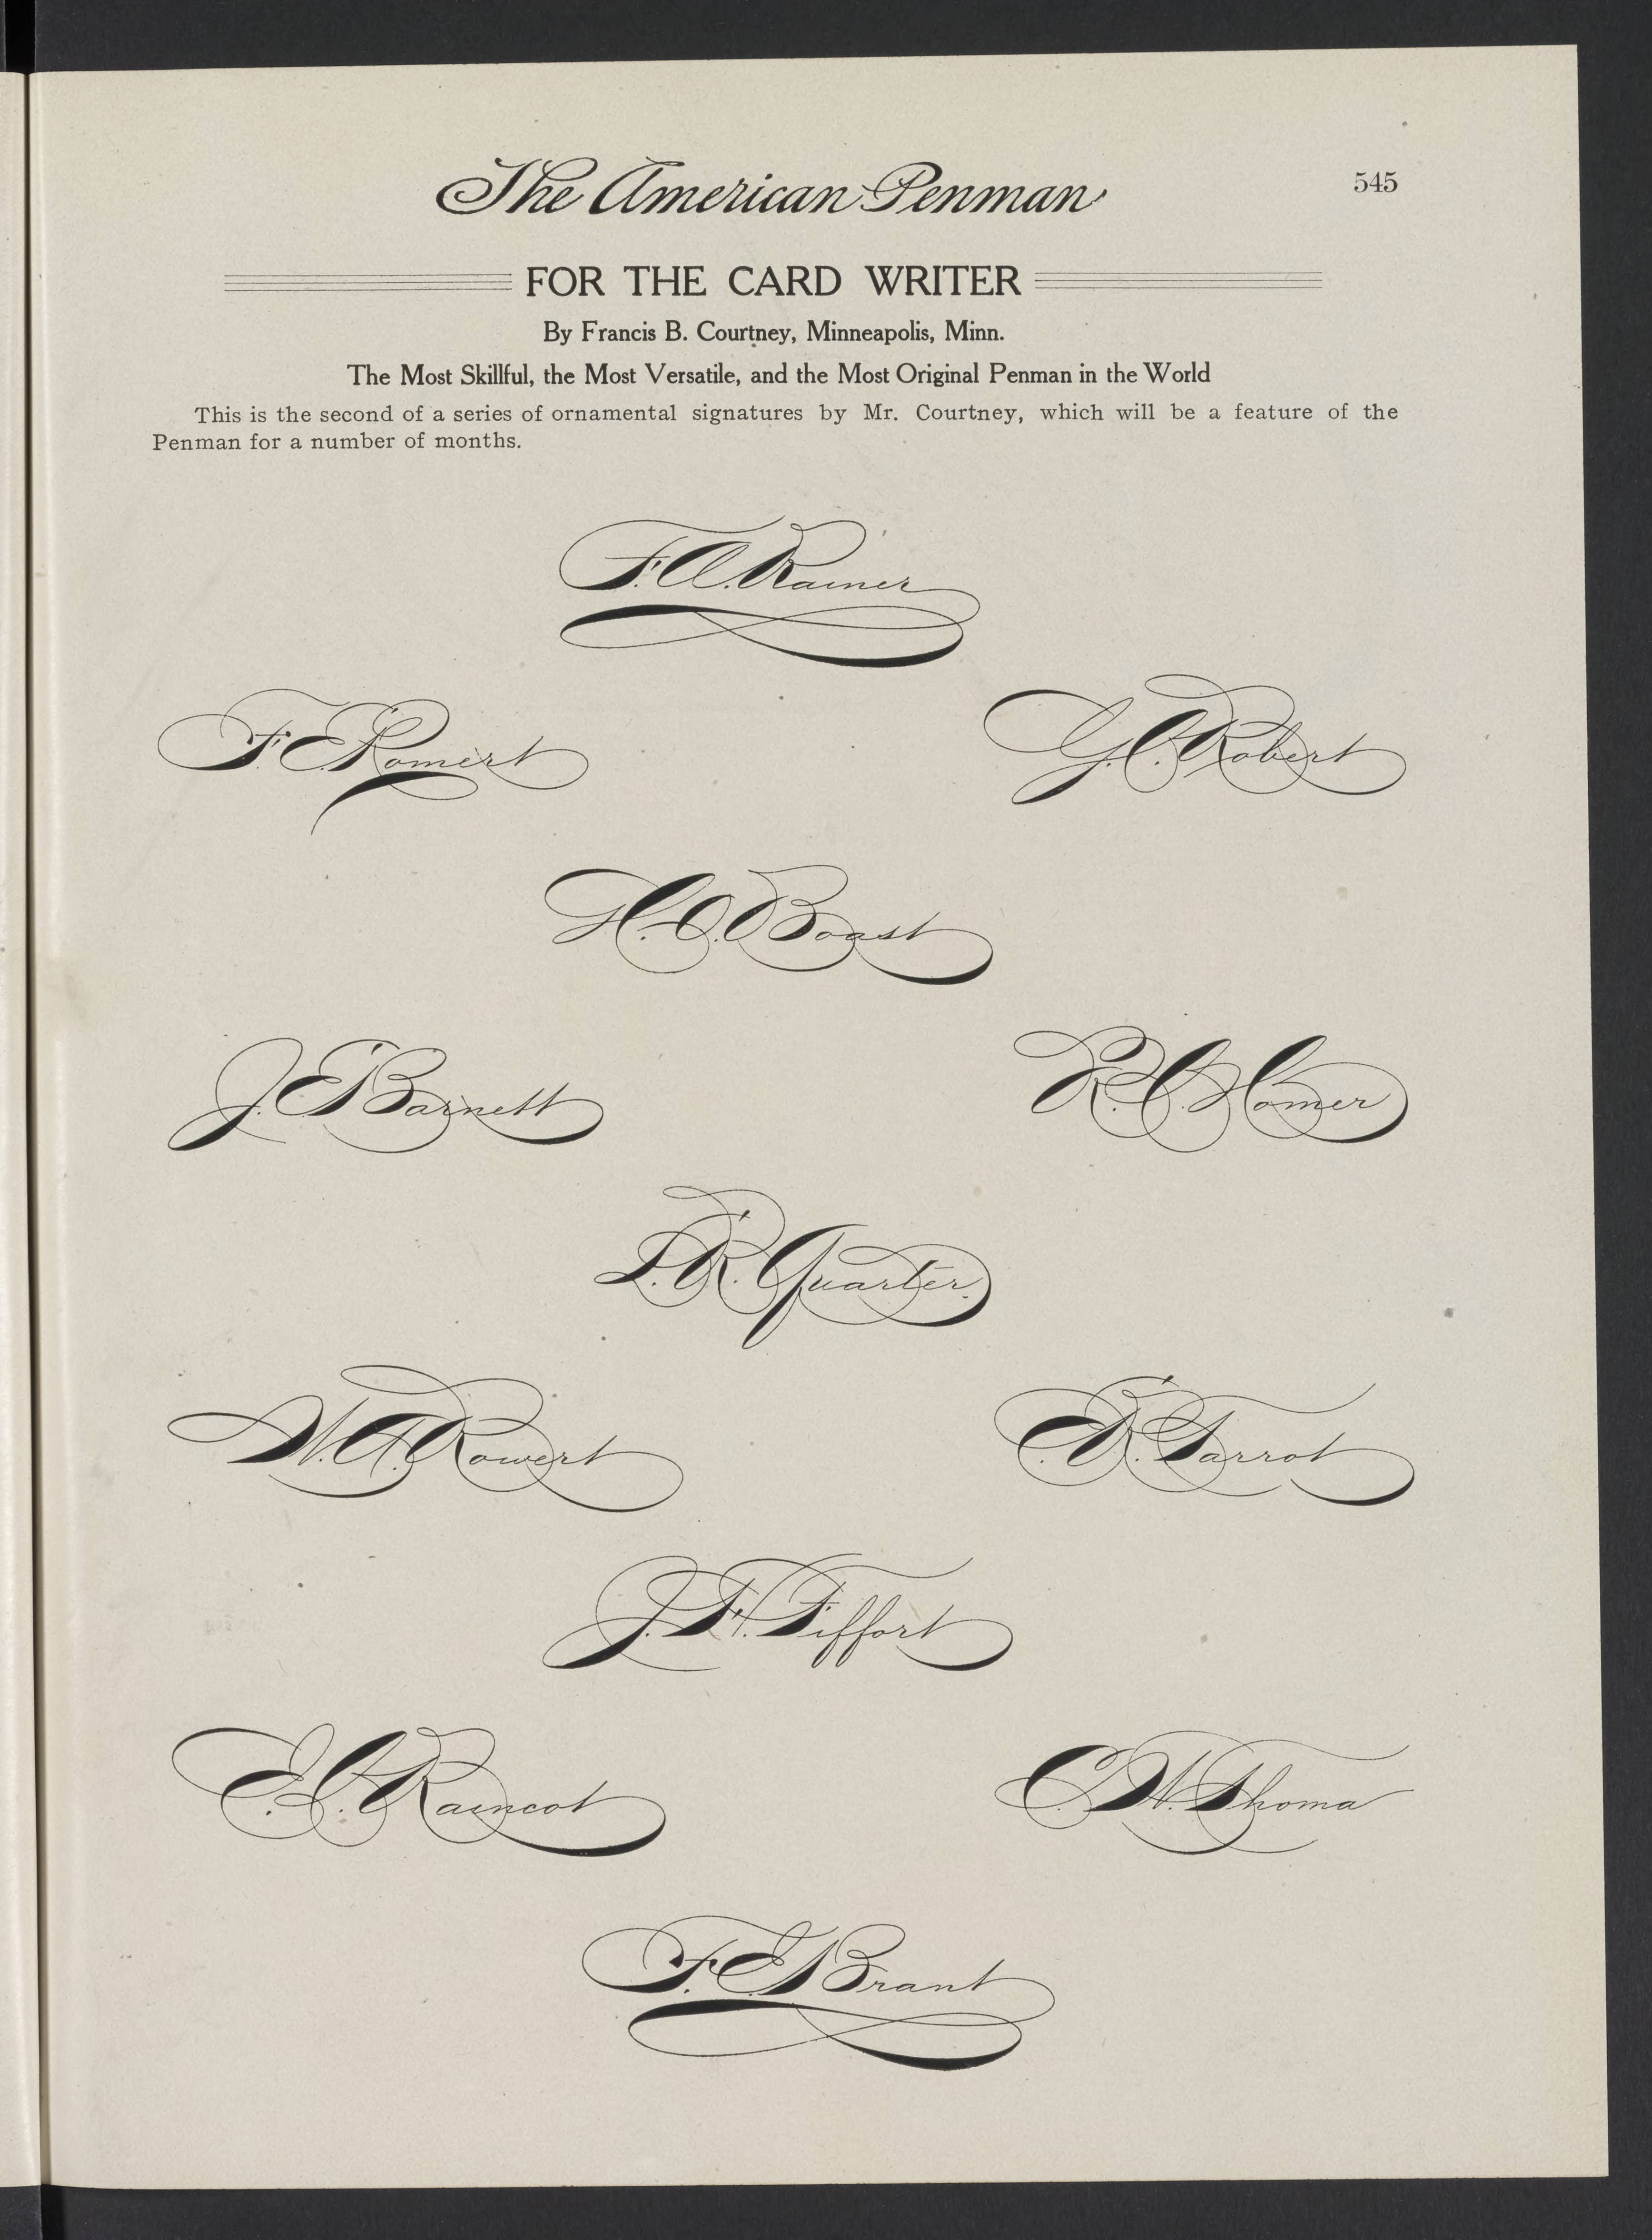 The American Penman
545
FOR THE CARD WRITER
By Francis B. Courtney, Minneapolis, Minn.
The Most Skillful, the Most Versatile, and the Most Original Penman in the World
This is the second of a series of ornamental signatures by Mr. Courtney, which will be a feature of the
Penman for a number of months.
F. A. Rainer
F. E. Romert
G. C. Robert
H. O. Boast
J. E. Barnett
R. C. Homer
L. R. Quarter.
W. A. Rowert
Tarrot
J. F. Tiffort
Raincot
C. W. Thoma
F. E. Brant